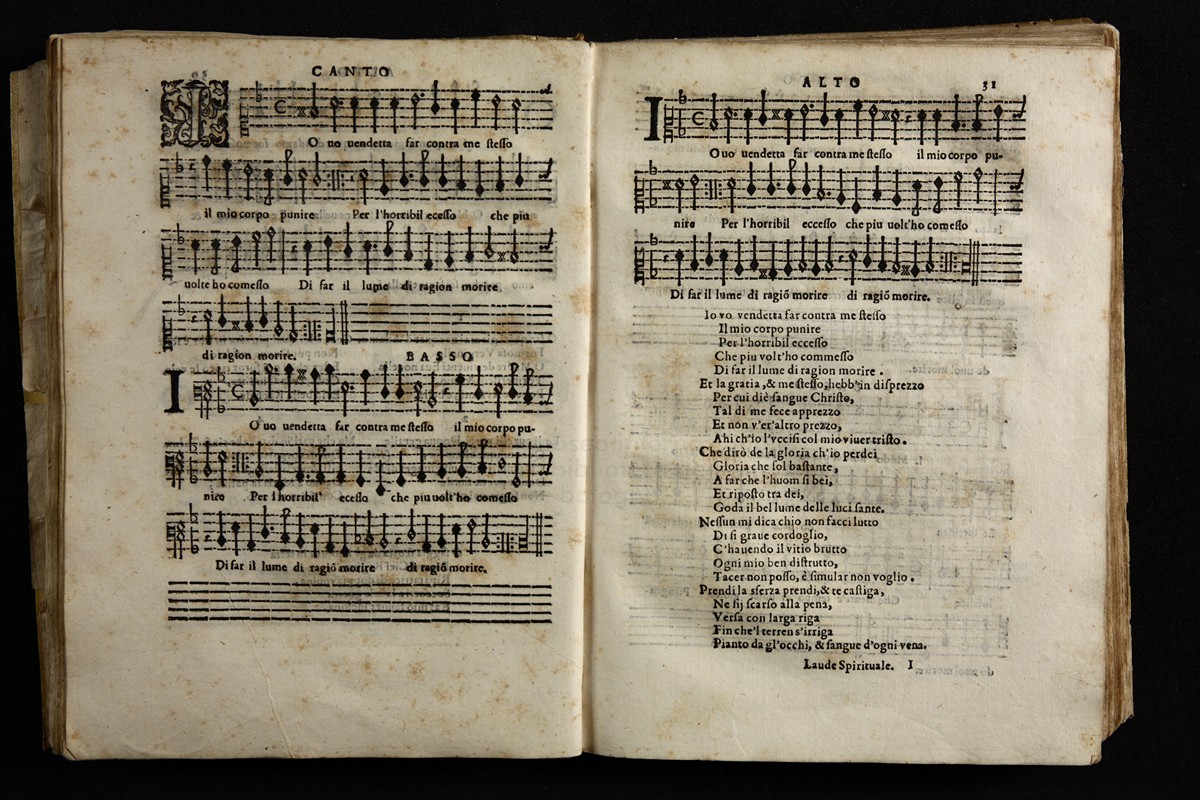 CANTO
IO uo uendetta far contra me stesso
il mio corpo punire Per l'horribil ecesso che piu
uolte ho comesso Di far il lume di ragion morire
di ragion morire.
BASSO
IO uo uendetta far contra me stesso il mio corpo pu-
nire Per l horribil ecesso che piu uolt'ho comesso
Di far il lume di ragiõ morire di ragiõ morire.
ALTO 31
IO uo uendetta far contra me stesso il mio corpo pu-
nire Per l'horribil eccesso che piu uolt'ho comesso
Di far il lume di ragiõ morire di ragiõ morire.
Io vo vendetta far contra me stesso
Il mio corpo punire
Per l'horribil eccesso
Che piu volt'ho commesso
Di far il lume di ragion morire.
Et la gratia, & me stesso, hebb'in disprezzo
Per cui diè sangue Christo,
Tal di me fece apprezzo
Et non v'er'altro prezzo,
Ahi ch'io l'vccisi col mio viuer tristo.
Che dirò de la gloria ch'io perdei
Gloria che sol bastante,
A far che l'huom si bei,
Et riposto tra dei,
Goda il bel lume delle luci sante.
Nessun mi dica chio non facci lutto
Di si graue cordoglio,
C'hauendo il vitio brutto
Ogni mio ben distrutto,
Tacer non posso, è simular non voglio.
Prendi la sferza prendi, & te castiga,
Ne sij scarso alla pena,
Versa con larga riga
Fin che'l terren s'irriga
Pianto da gl'occhi, & sangue d'ogni vena.
Laude Spirituale. I